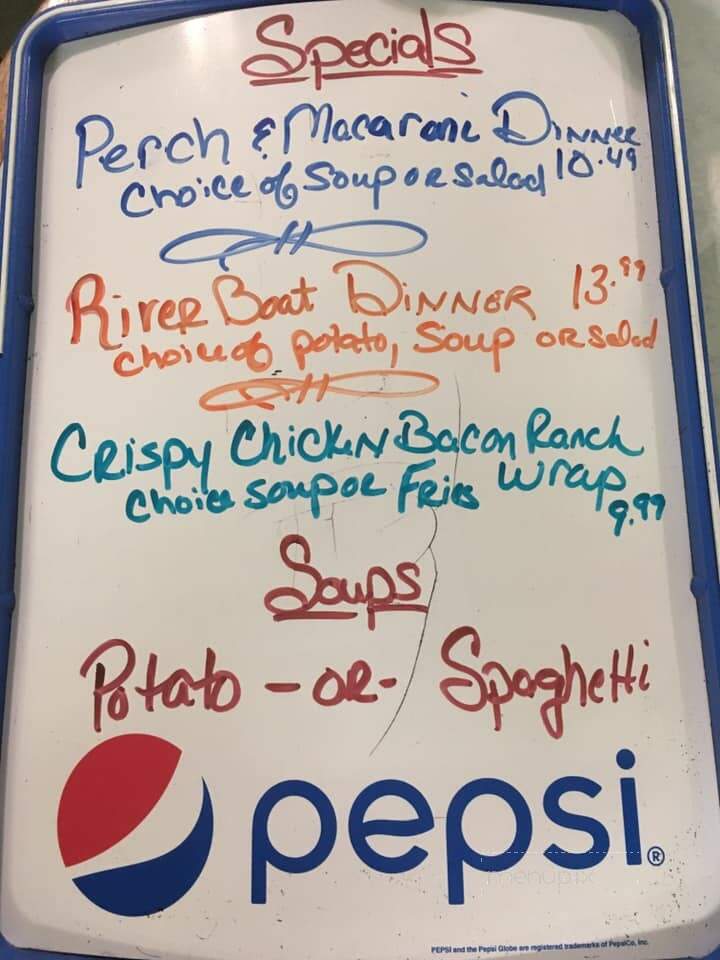 Specials
Perch & Macaroni Dinner
Choice of Soup or Salad 10.49
River Boat Dinner 13.99
choice of potato, Soup or salad
Crispy Chicken Bacon Ranch
Wrap
Choice soup or Fries 9.99
Soups
Potato - or - Spaghetti
pepsi®
menupix
PEPSI and the Pepsi Globe are registered trademarks of PepsiCo, Inc.